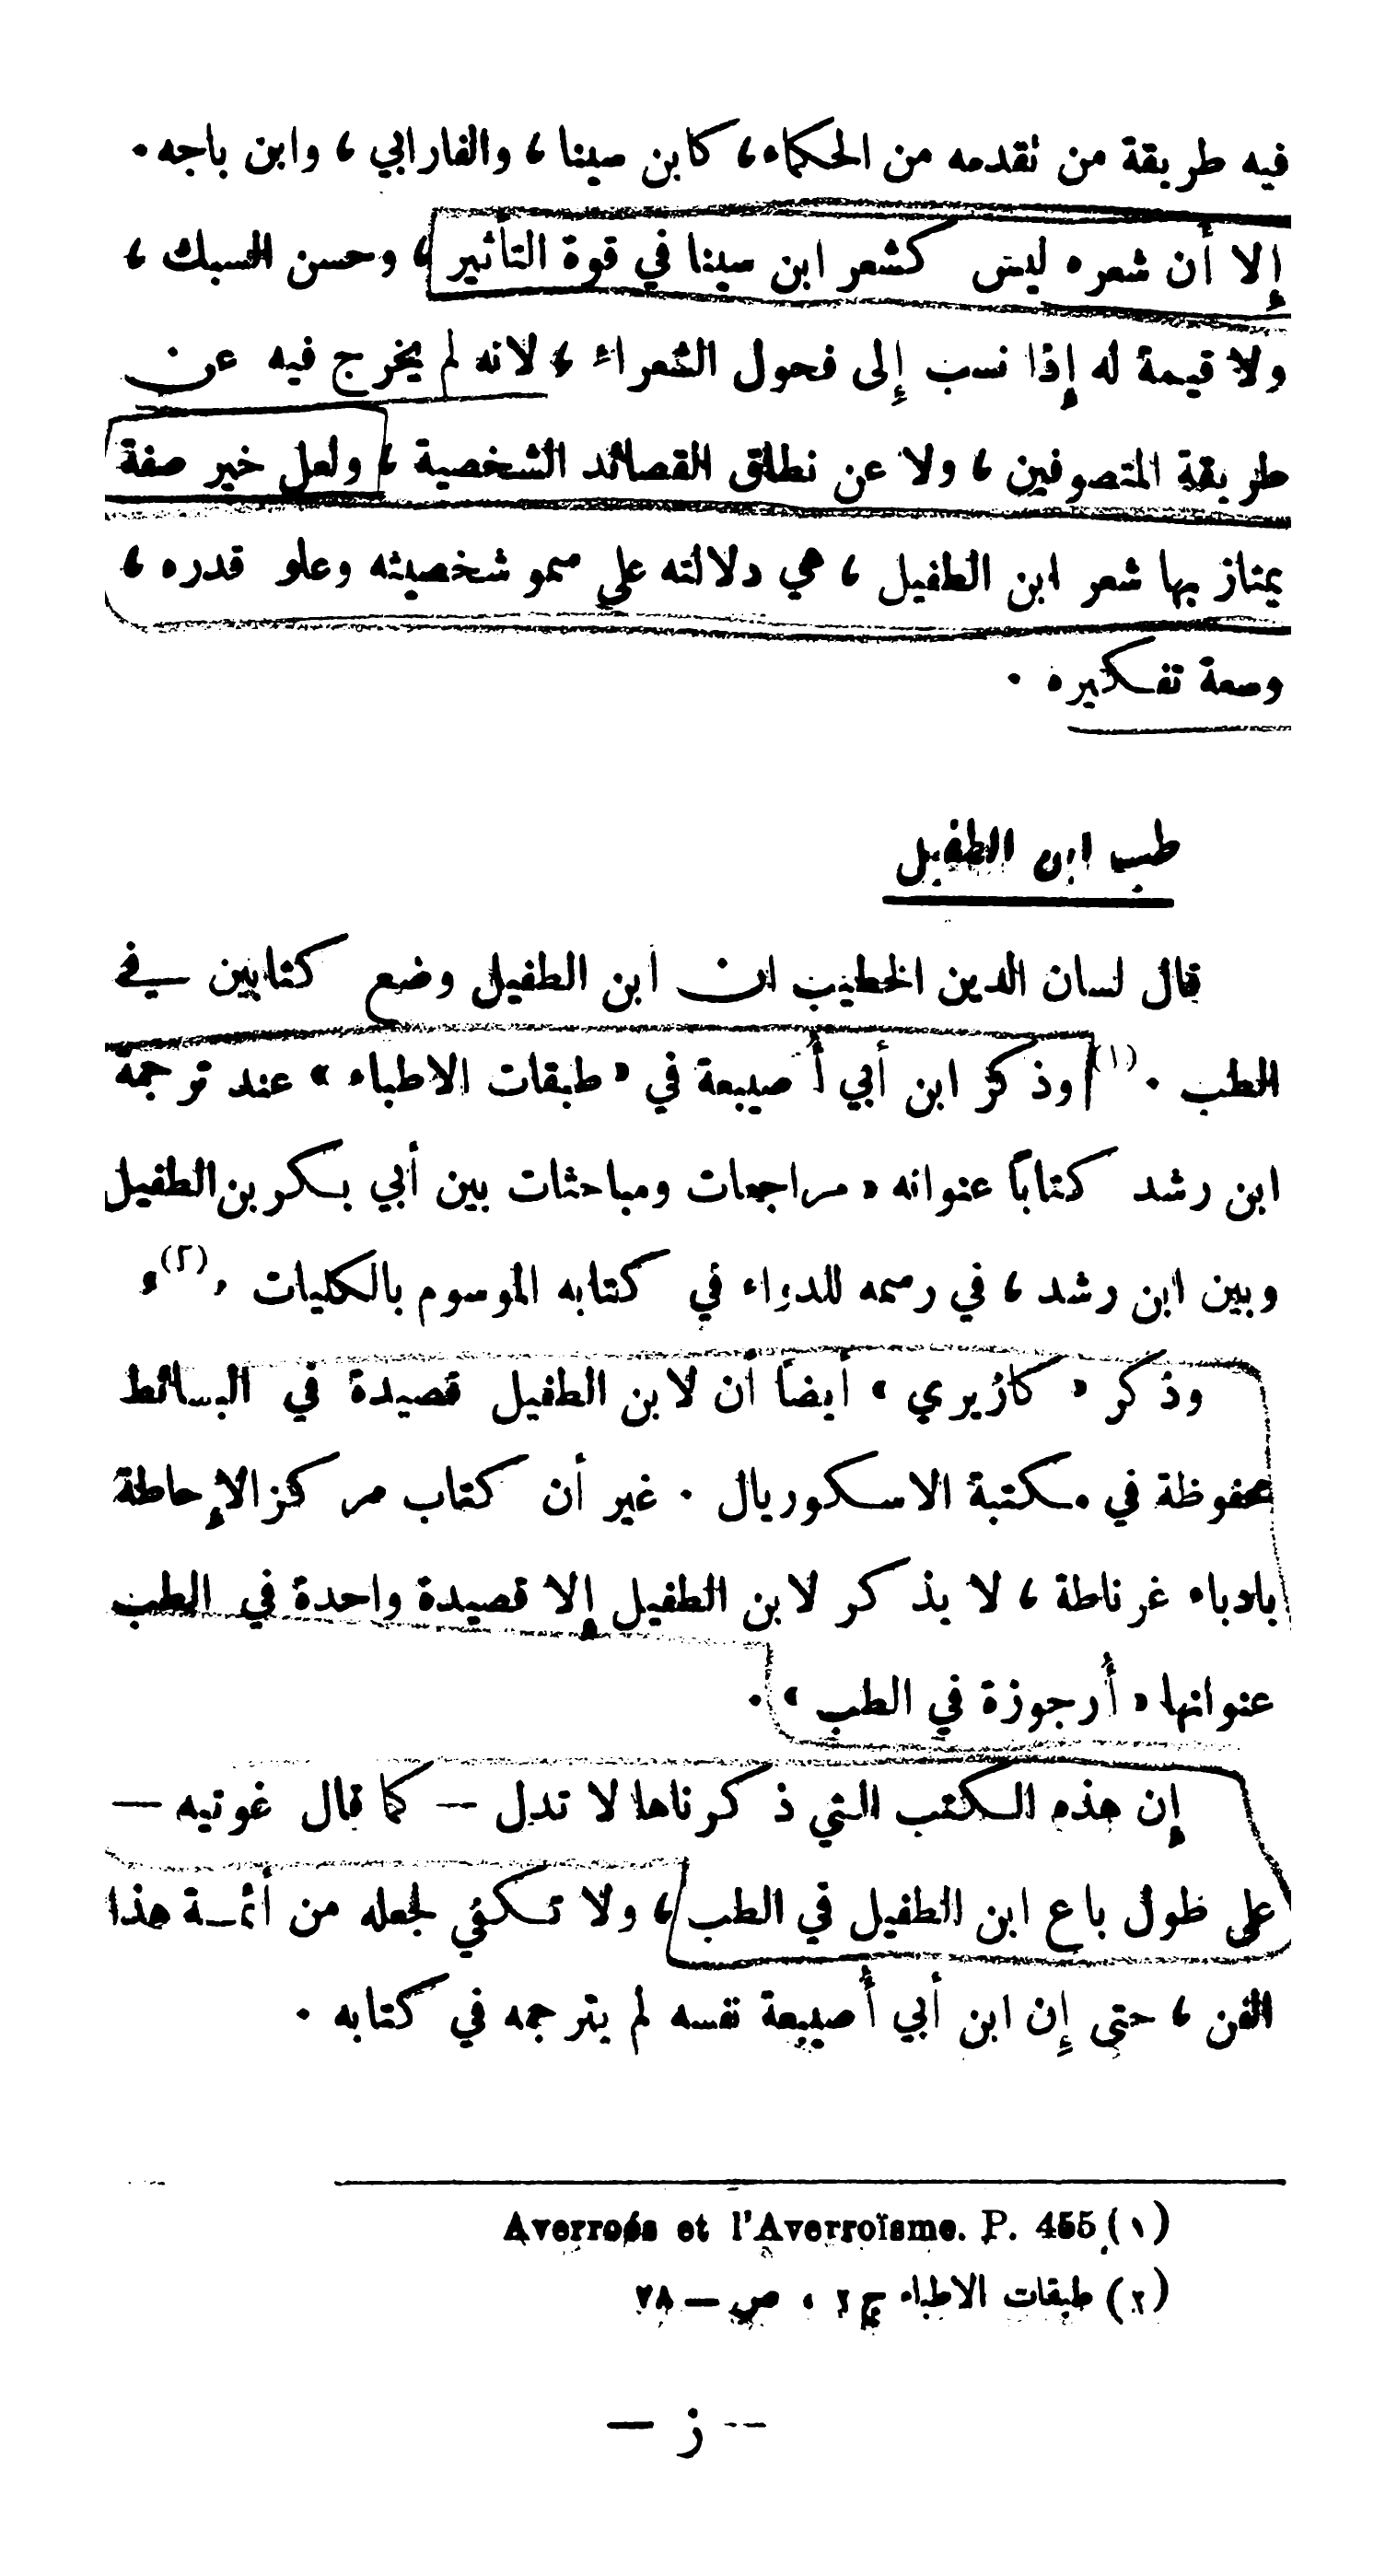 فيه طريقة من نقدمه من الحكماء، كابن سينا، والفارابي، وابن باجه.
إلا أن شعره ليس كشعر ابن سينا في قوة التأثير، وحسن السبك،
ولا قيمة له إذا نسب إلى فحول الشعراء، لانه لم يخرج فيه عن
طريقة المتصوفين، ولا عن نطاق القصائد الشخصية، ولعل خير صفة
يمتاز بها شعر ابن الطفيل، هي دلالته على سمو شخصيته وعلو قدره،
وسعة تفكيره.
طب ابن الطفيل
قال لسان الدين الخطيب ان ابن الطفيل وضع كتابين في
الطب.(١) وذكر ابن أبي أُصيبعة في «طبقات الاطباء» عند ترجمة
ابن رشد كتاباً عنوانه «مراجعات ومباحثات بين أبي بكر بن الطفيل
وبين ابن رشد، في رسمه للدواء في كتابه الموسوم بالكليات»(٢).
وذكر «كازيري» أيضاً أن لابن الطفيل قصيدة في البسائط
محفوظة في مكتبة الاسكوريال. غير أن كتاب مركز الإحاطة
بادباء غرناطة، لا يذكر لابن الطفيل إلا قصيدة واحدة في الطب
عنوانها «أُرجوزة في الطب».
إن هذه الكتب التي ذكرناها لا تدل — كما قال غوتيه —
على طول باع ابن الطفيل في الطب، ولا تكفي لجعله من أئمة هذا
الفن، حتى إن ابن أبي أُصيبعة نفسه لم يترجمه في كتابه.
(١) Averroés et l'Averroïsme. P. 455
(٢) طبقات الاطباء ج٢، ص — ٧٨
— ز —